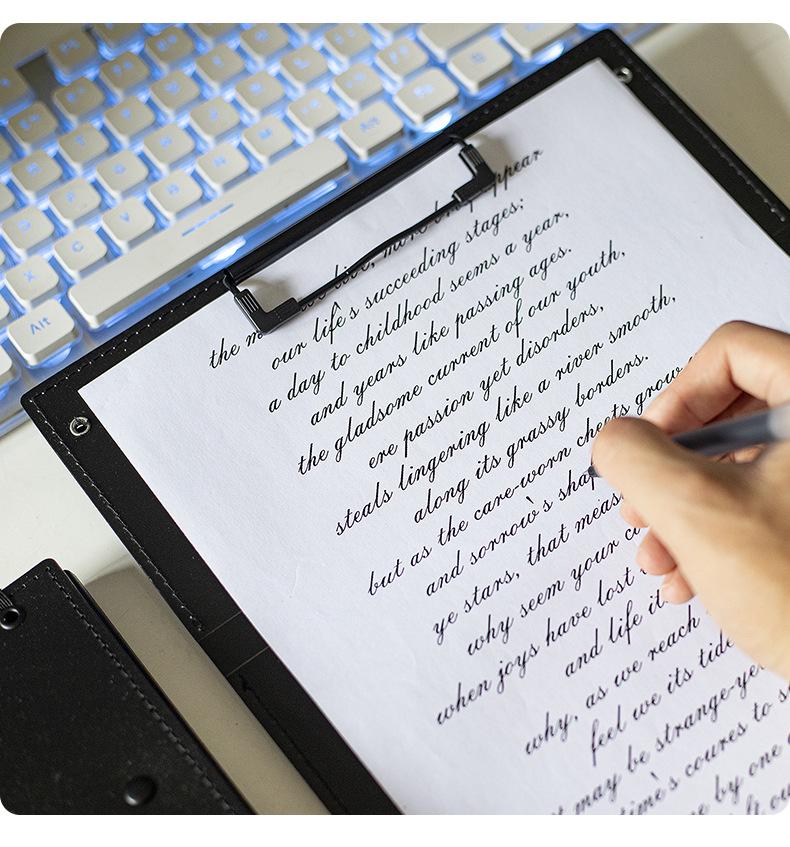 Alt
Alt
X
C
V
B
N
M
the more we live, more brief appear
our life's succeeding stages;
a day to childhood seems a year,
and years like passing ages.
the gladsome current of our youth,
ere passion yet disorders,
steals lingering like a river smooth,
along its grassy borders.
but as the care-worn cheets grow
and sorrow's sha
ye stars, that meas
why seem your c
when joys have lost
and life it
why, as we reach
feel we its tide
may be strange-ye
time's coures to s
by one